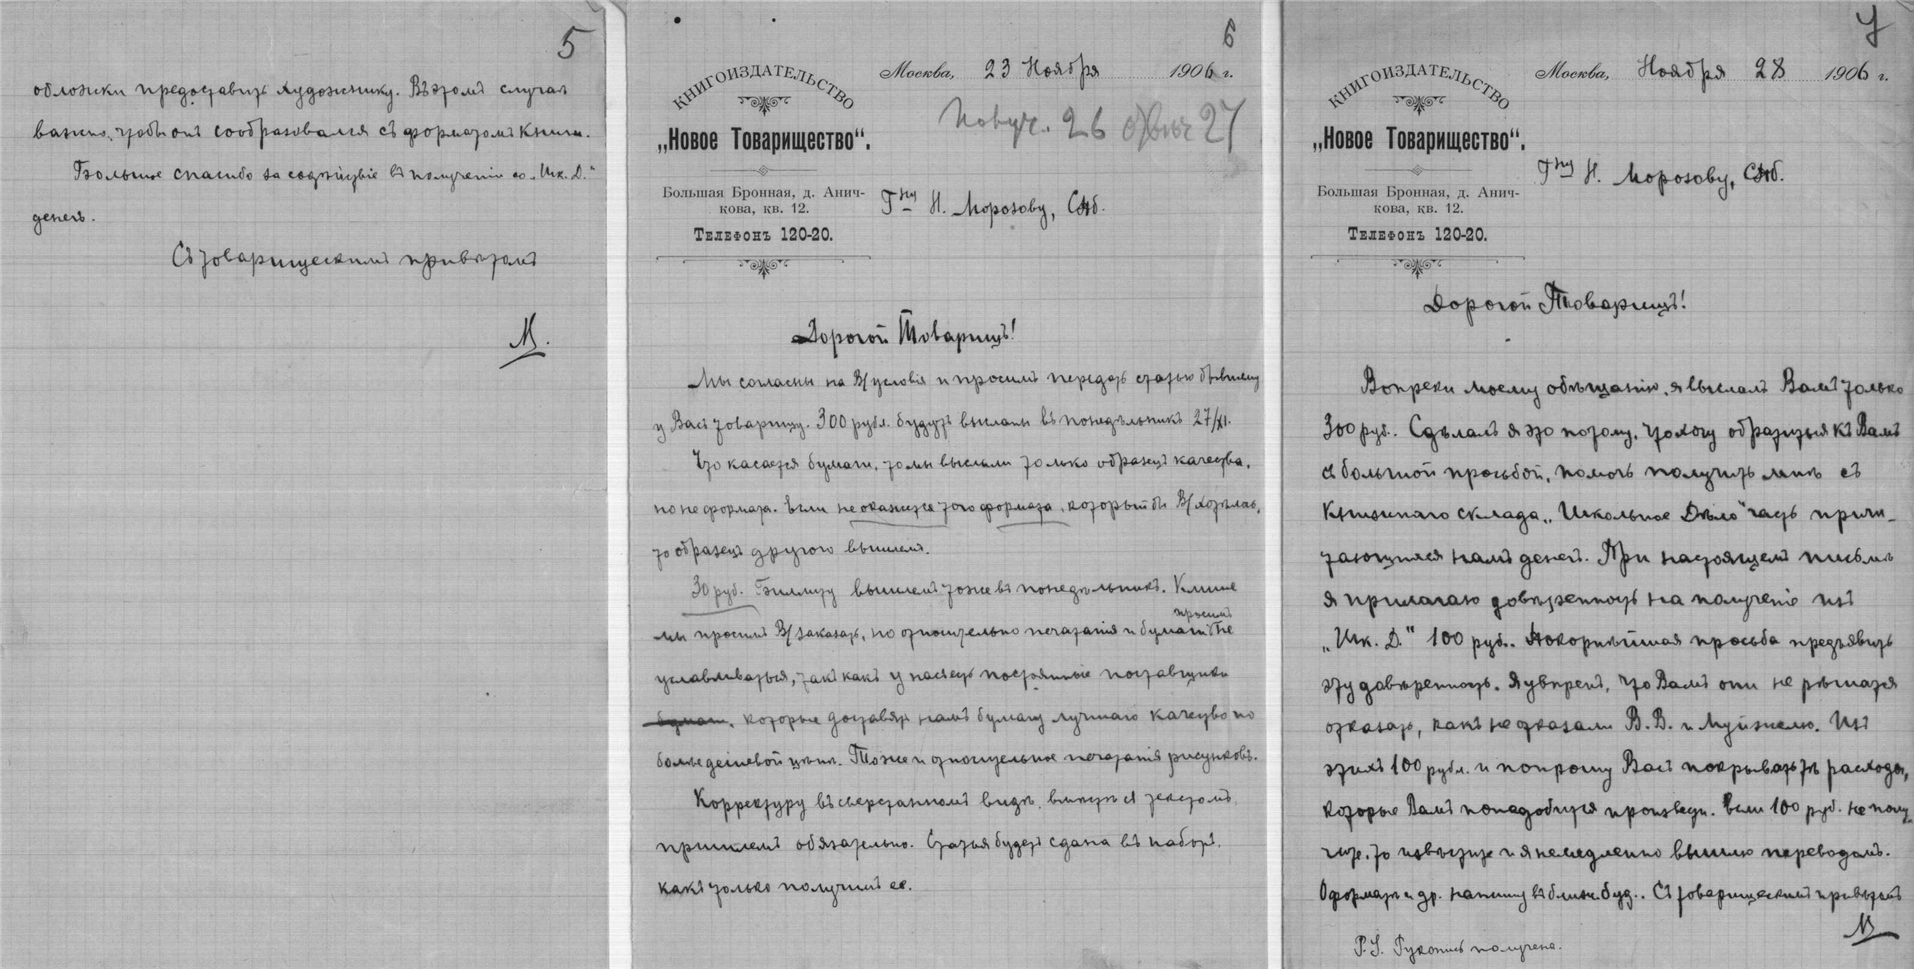 5
обложки предоставить художнику. Въ этомъ случаѣ
важно, чтобы онъ сообразовался съ форматомъ книги.
Большое спасибо за содѣйствіе въ полученіи со „Шк. Д."
денегъ.
Съ товарищескимъ привѣтомъ
М.
6
КНИГОИЗДАТЕЛЬСТВО
„Новое Товарищество".
Большая Бронная, д. Анич-
кова, кв. 12.
Телефонъ 120-20.
Москва, 23 Ноября 1906 г.
Получ. 26 отвѣч 27
Г-ну Н. Морозову, Спб.
Дорогой Товарищъ!
Мы согласны на В/ условія и просимъ передать статью бывшему
у Васъ товарищу. 300 рубл. будутъ высланы въ понедѣльникъ 27/XI.
Что касается бумаги, то мы выслали только образецъ качества,
но не формата. Если не окажется того формата, который бы В/ хотѣлось,
то образецъ другого вышлемъ.
30 руб. Билиту вышлемъ тоже въ понедѣльникъ. Клише
мы просимъ В/ заказать, но относительно печатанія и бумаги просимъ не
уславливаться, такъ какъ у насъ есть постоянные поставщики
бумаги, которые доставятъ намъ бумагу лучшаго качества по
болѣе дешевой цѣнѣ. Тоже и относительно печатанія рисунковъ.
Корректуру въ сверстанномъ видѣ, вмѣстѣ съ текстомъ,
пришлемъ обязательно. Статья будетъ сдана въ наборъ,
какъ только получимъ ее.
7
КНИГОИЗДАТЕЛЬСТВО
„Новое Товарищество".
Большая Бронная, д. Анич-
кова, кв. 12.
Телефонъ 120-20.
Москва, Ноября 28 1906 г.
Г-ну Н. Морозову, Спб.
Дорогой Товарищъ!
Вопреки моему обѣщанію, я выслалъ Вамъ только
300 руб.. Сдѣлалъ я это потому, что хочу обратиться къ Вамъ
съ большой просьбой, помочь получить мнѣ съ
Книжнаго склада „Школьное Дѣло" часть причи-
тающихся намъ денегъ. При настоящемъ письмѣ
я прилагаю довѣренность на полученіе изъ
„Шк. Д." 100 руб.. Покорнѣйшая просьба предъявить
эту довѣренность. Я увѣренъ, что Вамъ они не рѣшатся
отказать, какъ не отказали В.В. и Муйжелю. Изъ
этихъ 100 рубл. и попрошу Васъ покрывать тѣ расходы,
которые Вамъ понадобится произвести. Если 100 руб. не полу-
чите, то извѣстите и я немедленно вышлю переводомъ.
О форматѣ и др. напишу въ ближ. буд.. Съ товарищескимъ привѣтомъ
М
P.S. Рукопись получена.